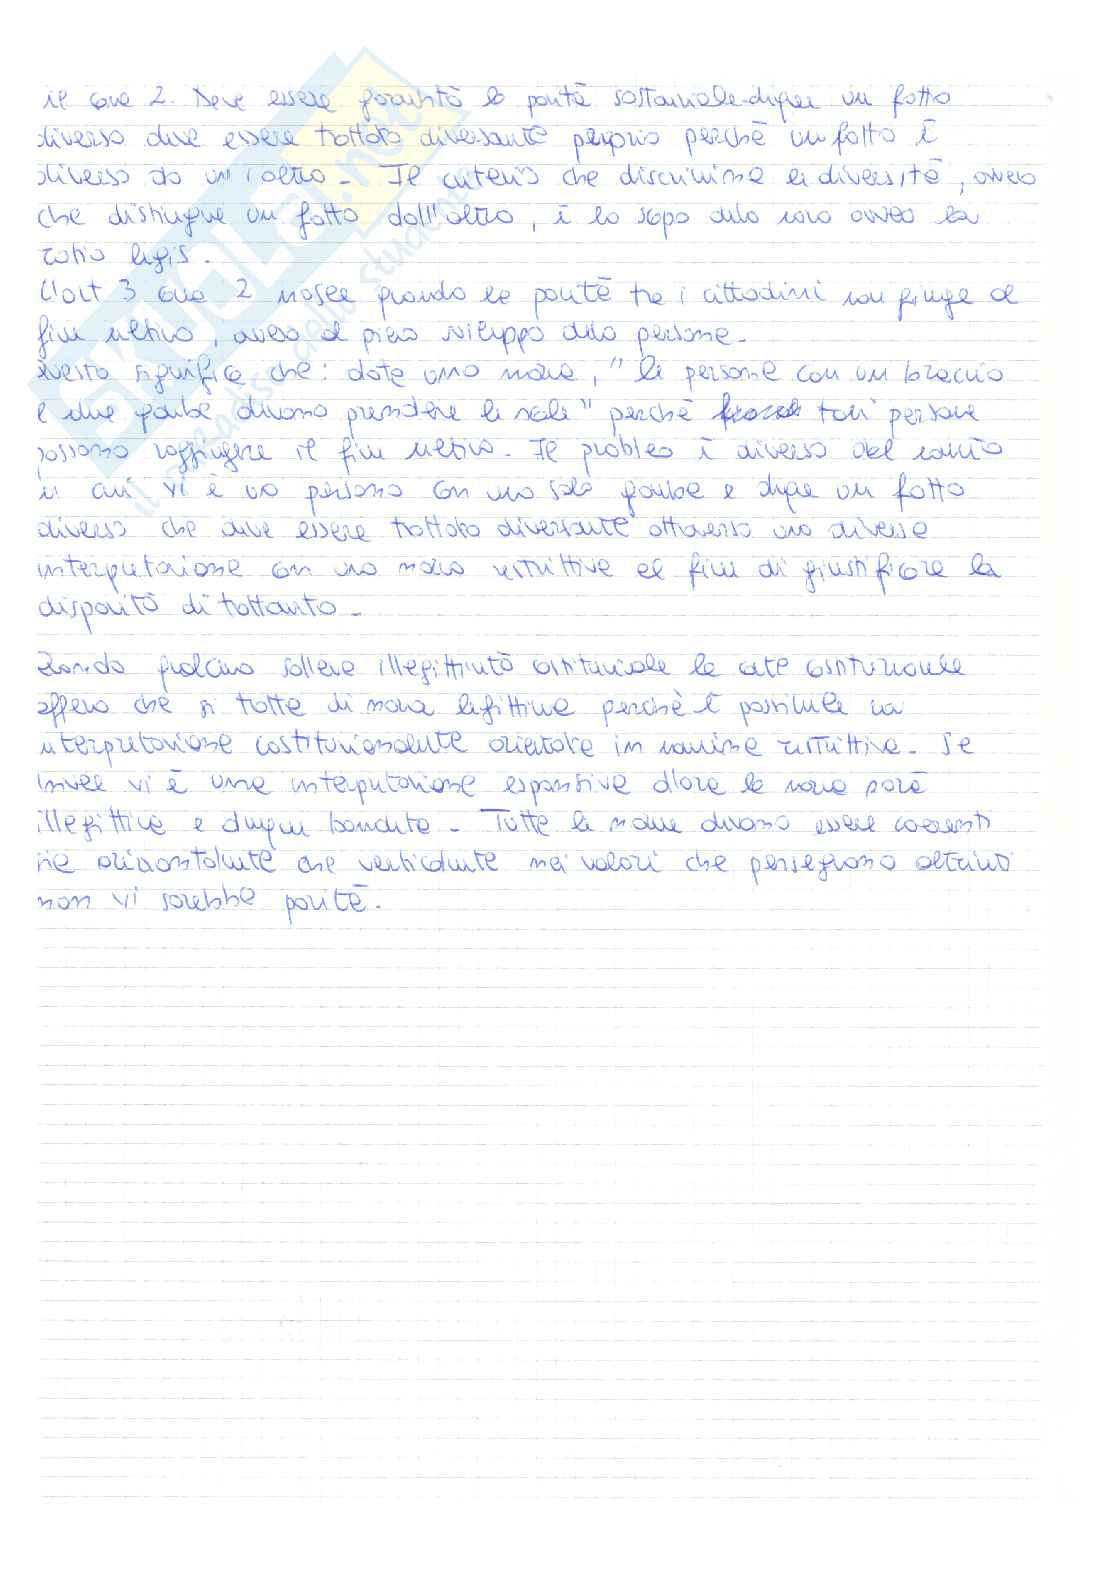 il comma 2. Deve essere garantita la parità sostanziale dunque un fatto
diverso deve essere trattato diversamente proprio perchè un fatto è
diverso da un'altro. Il criterio che discrimina la diversità, ovvero
che distingue un fatto dall'altro, è lo scopo della norma ovvero la
ratio legis.
L'art 3 comma 2 nasce quando la parità tra i cittadini non giunge al
fine ultimo, ovvero al pieno sviluppo della persona.
Questo significa che: data una norma, "le persone con un braccio
e due gambe devono prendere le scale" perchè tali persone
possono raggiungere il fine ultimo. Il problema è diverso dal
in cui vi è una persona con una sola gamba e dunque un fatto
diverso che deve essere trattato diversamente attraverso una diversa
interpretazione con una norma restrittiva al fine di giustificare la
disparità di trattamento.
Quando qualcuno solleva illegittimità costituzionale la corte costituzionale
afferma che si tratta di norma legittima perchè è possibile una
interpretazione costituzionalmente orientata in maniera restrittiva. Se
invece vi è una interpretazione espansiva allora la norma sarà
illegittima e dunque bandita. Tutte le norme devono essere coerenti
sia orizzontalmente che verticalmente nei valori che perseguono altrimenti
non vi sarebbe parità.
SKUOLA.net
il paradiso dello studente